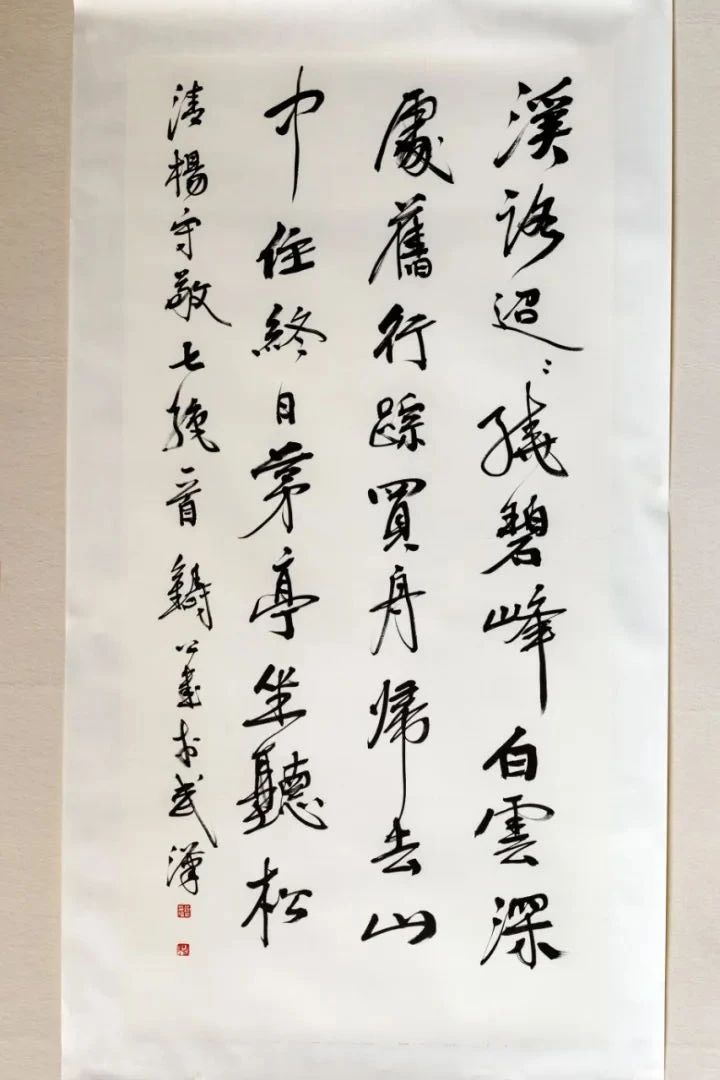 溪路迢〻繞碧峰白雲深
處舊行踪買舟歸去山
中住終日茅亭坐聽松
清楊守敬七絕一首 鑄公書於武漢